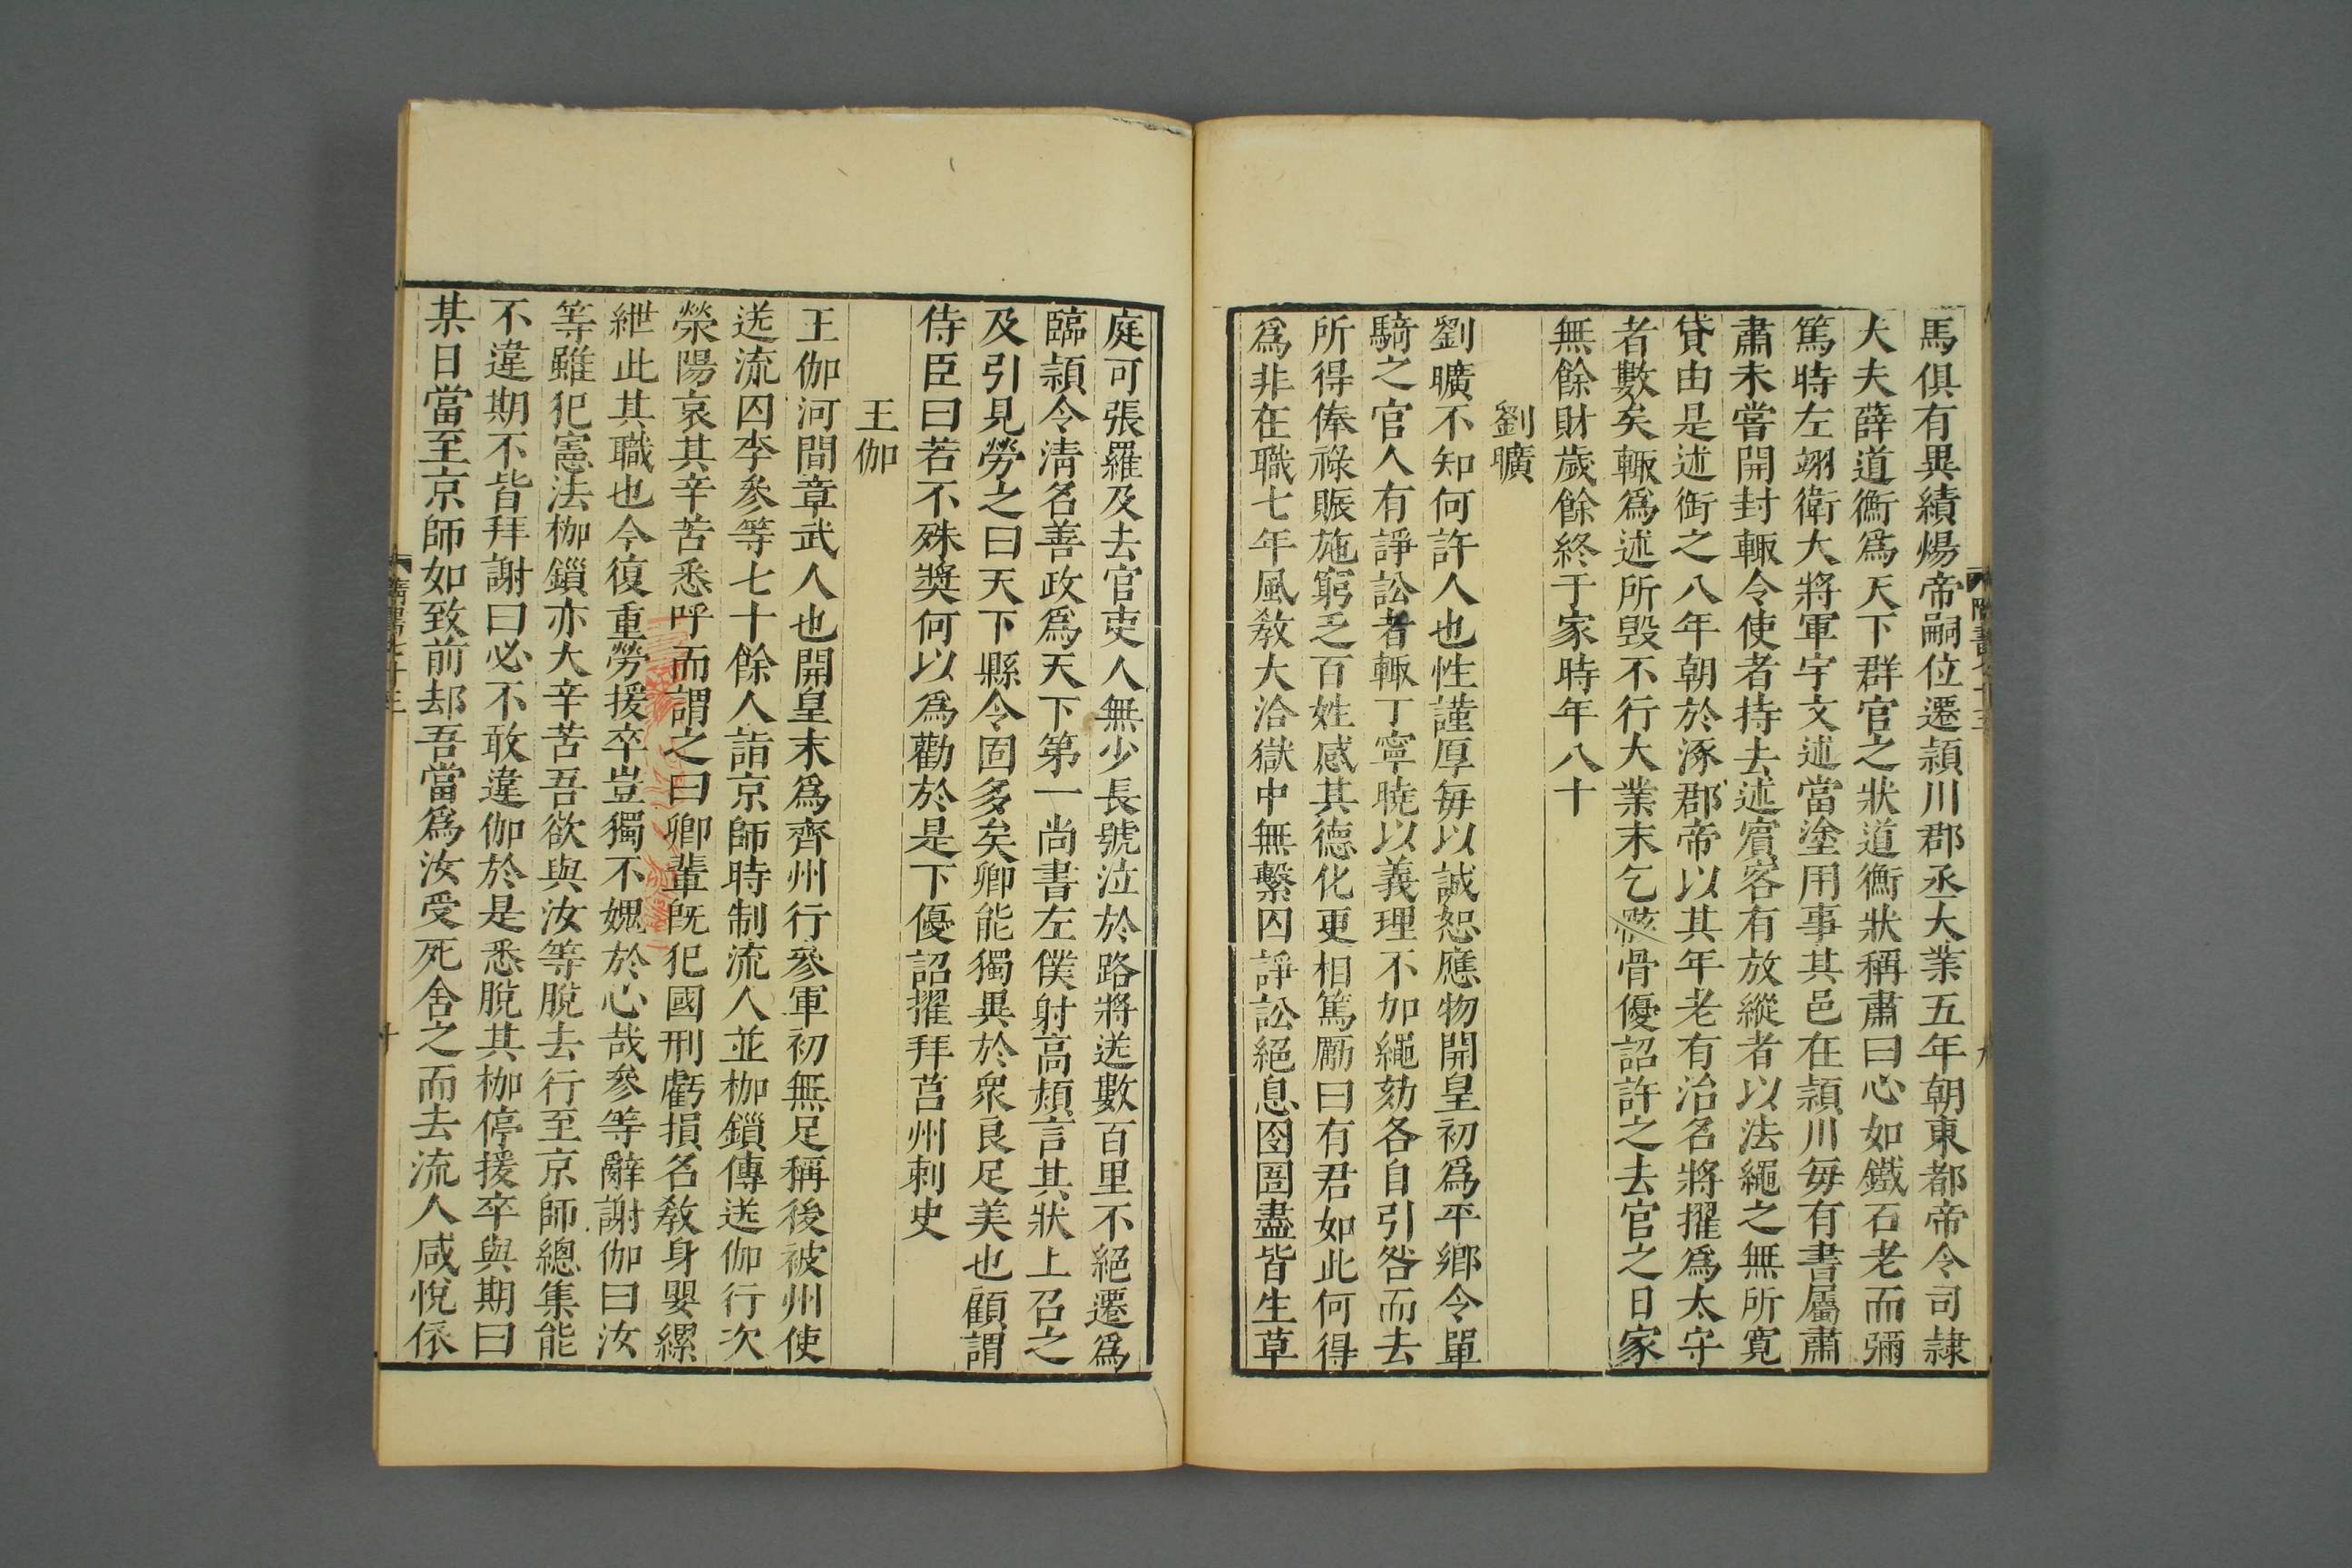 馬俱有異績煬帝嗣位遷潁川郡丞大業五年朝東都帝令司隷
大夫薛道衡爲天下群官之狀道衡狀稱肅曰心如鐵石老而彌
篤時左翊衛大將軍宇文述當塗用事其邑在潁川每有書屬肅
肅未嘗開封輒令使者持去述賓客有放縱者以法繩之無所寛
貸由是述銜之八年朝於涿郡帝以其年老有治名將擢爲太守
者數矣輒爲述所毀不行大業末乞骸骨優詔許之去官之日家
無餘財歲餘終于家時年八十
劉曠
劉曠不知何許人也性謹厚每以誠恕應物開皇初爲平鄉令單
騎之官人有諍訟者輒丁寧曉以義理不加繩劾各自引咎而去
所得俸祿賑施窮乏百姓感其德化更相篤勵曰有君如此何得
爲非在職七年風敎大洽獄中無繫囚諍訟絕息囹圄盡皆生草
庭可張羅及去官吏人無少長號泣於路將送數百里不絕遷爲
臨潁令淸名善政爲天下第一尚書左僕射高熲言其狀上召之
及引見勞之曰天下縣令固多矣卿能獨異於衆良足美也顧謂
侍臣曰若不殊奬何以爲勸於是下優詔擢拜莒州刺史
王伽
王伽河間章武人也開皇末爲齊州行參軍初無足稱後被州使
送流囚李參等七十餘人詣京師時制流人並枷鎖傳送伽行次
滎陽哀其辛苦悉呼而謂之曰卿輩旣犯國刑虧損名敎身嬰縲
紲此其職也今復重勞援卒豈獨不媿於心哉參等辭謝伽曰汝
等雖犯憲法枷鎖亦大辛苦吾欲與汝等脫去行至京師總集能
不違期不皆拜謝曰必不敢違伽於是悉脫其枷停援卒與期曰
某日當至京師如致前却吾當爲汝受死舍之而去流人咸悅依